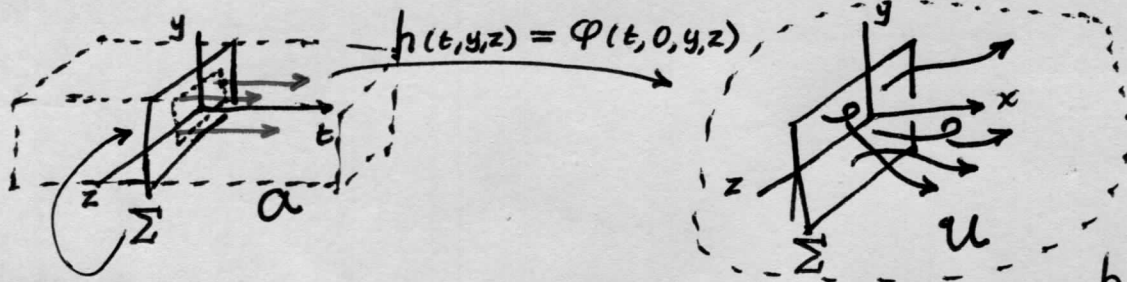 y
h(t,y,z) = φ(t,0,y,z)
y
t
x
z
Σ
a
z
Σ
U
h